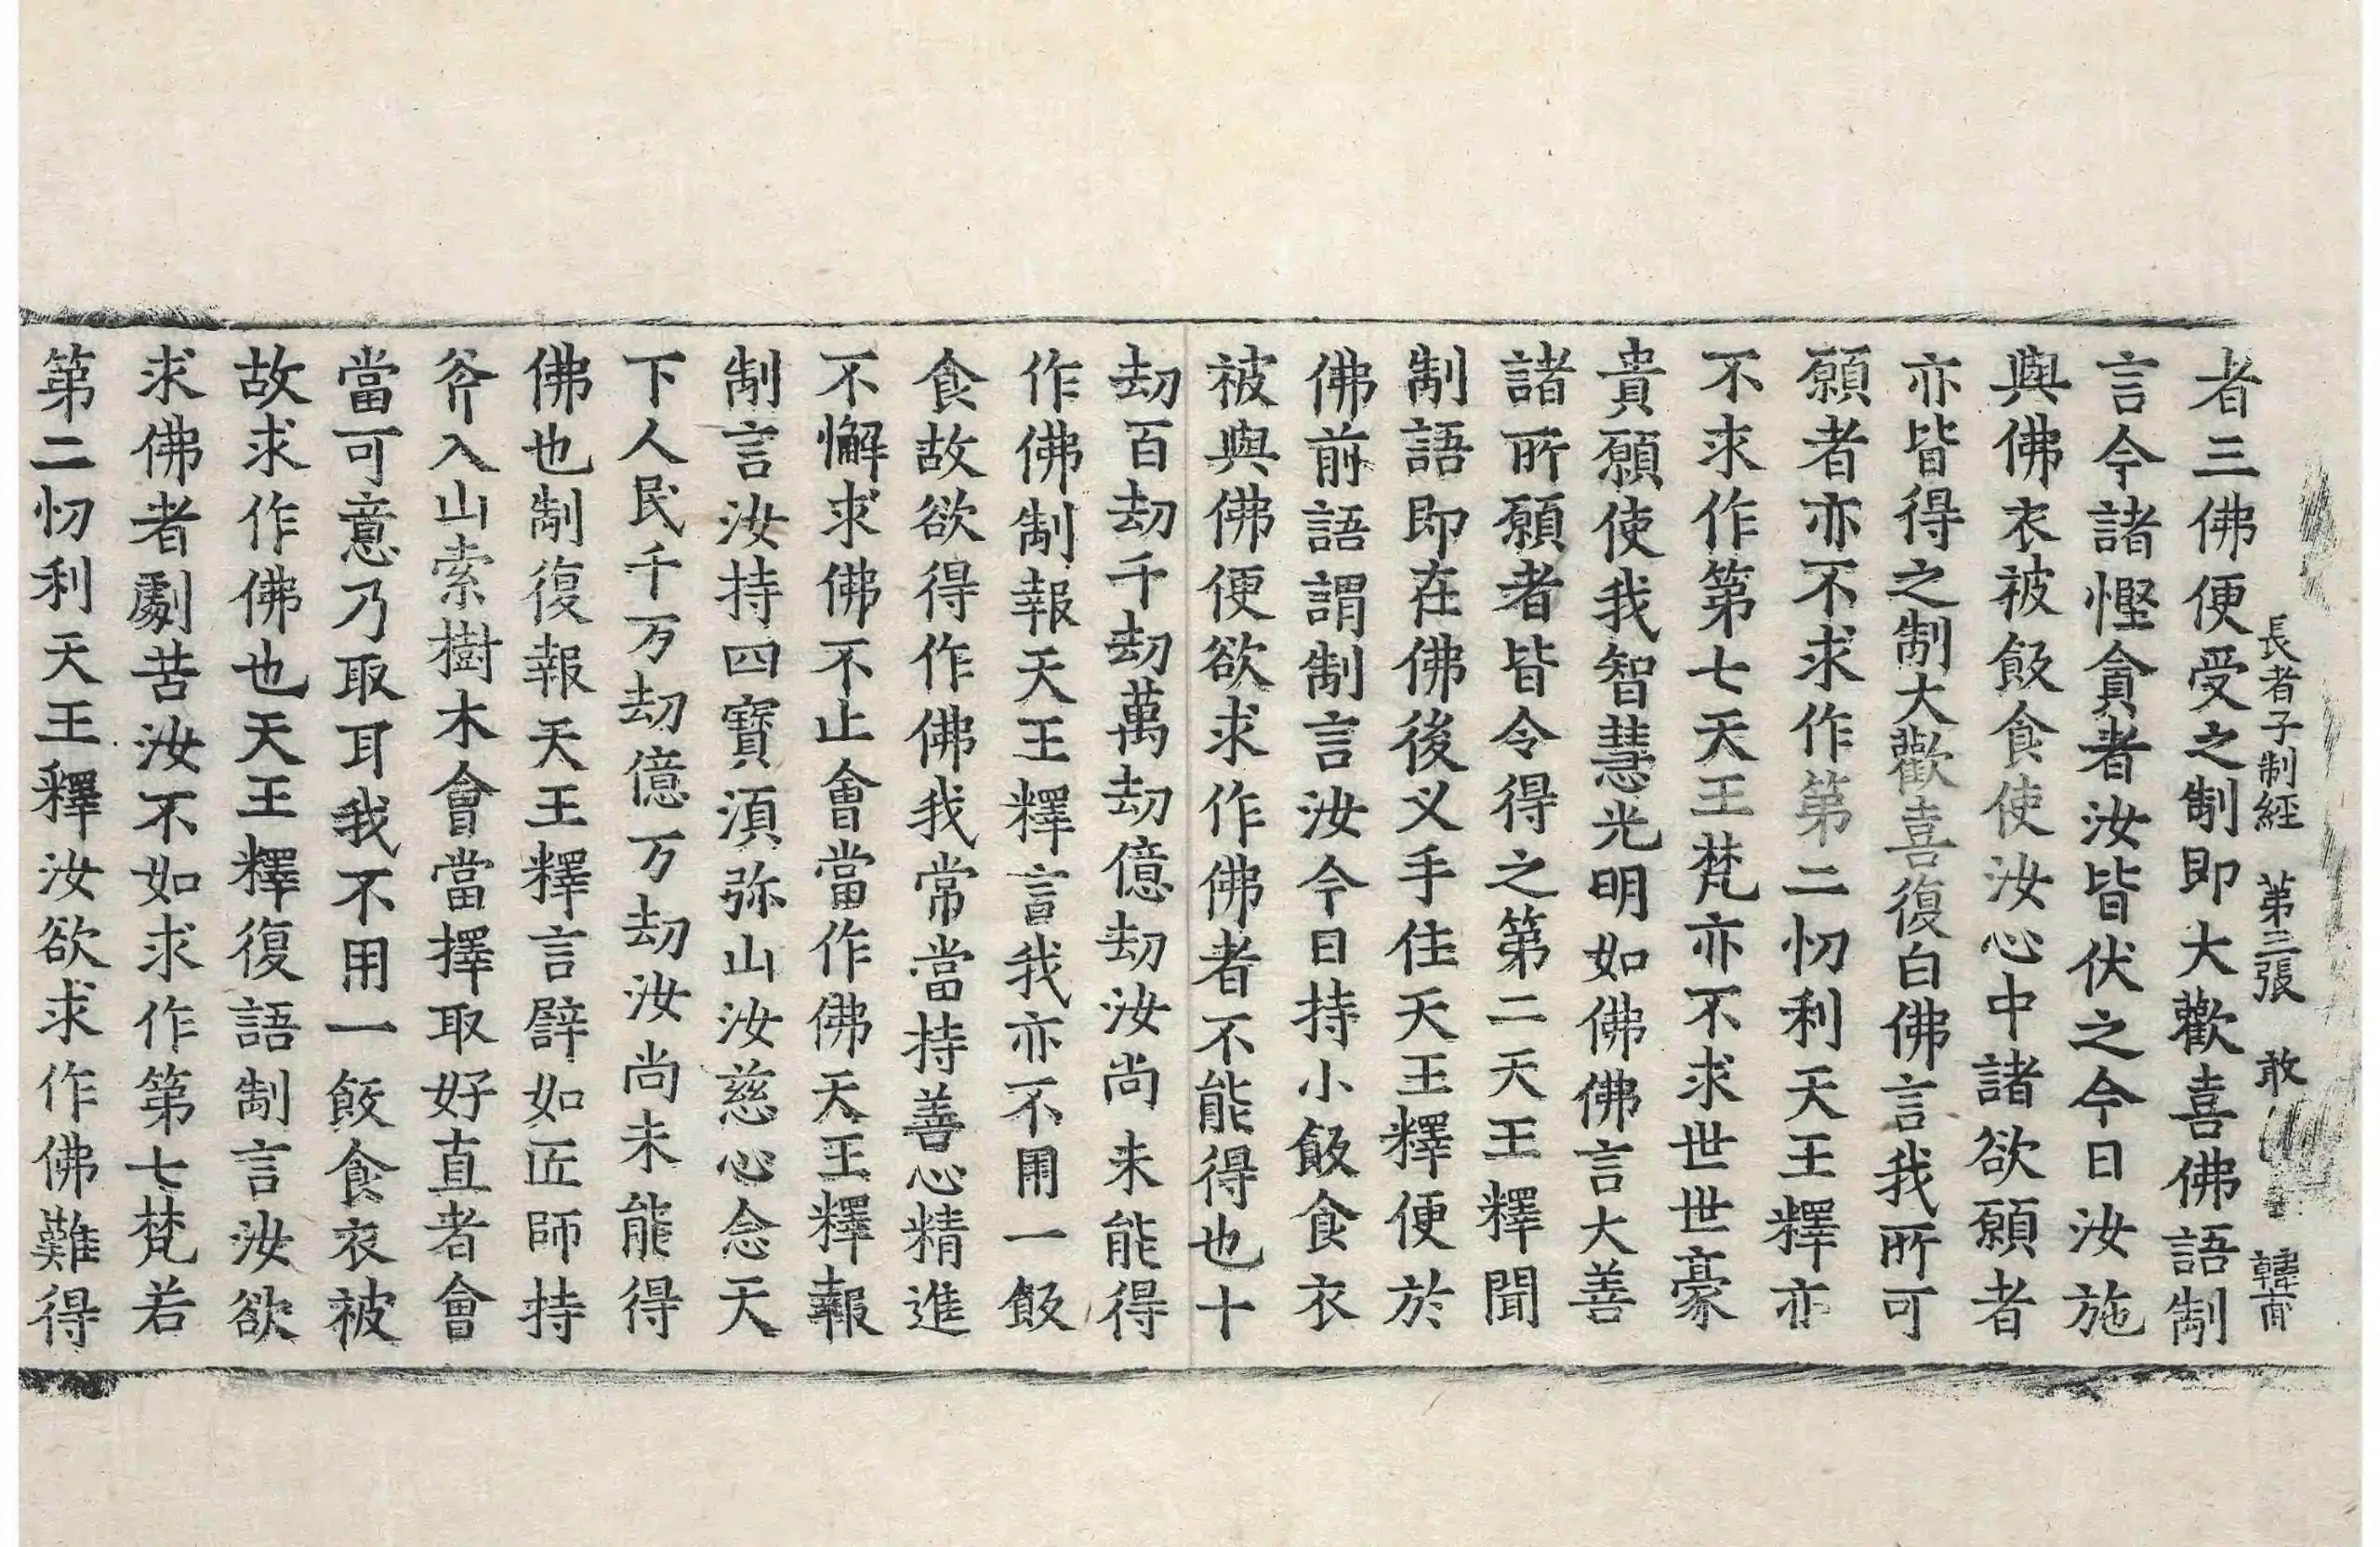 長者子制經 第三張 敢 韓甫
者三佛便受之制即大歡喜佛語制
言今諸慳貪者汝皆伏之今日汝施
與佛衣被飯食使汝心中諸欲願者
亦皆得之制大歡喜復白佛言我所可
願者亦不求作第二忉利天王釋亦
不求作第七天王梵亦不求世世豪
貴願使我智慧光明如佛佛言大善
諸所願者皆令得之第二天王釋聞
制語即在佛後义手住天王釋便於
佛前語謂制言汝今日持小飯食衣
被與佛便欲求作佛者不能得也十
劫百劫千劫萬劫億劫汝尚未能得
作佛制報天王釋言我亦不用一飯
食故欲得作佛我常當持善心精進
不懈求佛不止會當作佛天王釋報
制言汝持四寶湏弥山汝慈心念天
下人民千万劫億万劫汝尚未能得
佛也制復報天王釋言譬如匠師持
斧入山索樹木會當擇取好直者會
當可意乃取耳我不用一飯食衣被
故求作佛也天王釋復語制言汝欲
求佛者劇苦汝不如求作第七梵若
第二忉利天王釋汝欲求作佛難得